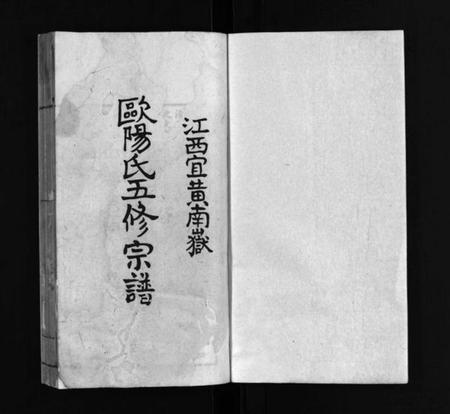 江西宜黄南嶽
歐陽氏五修宗譜